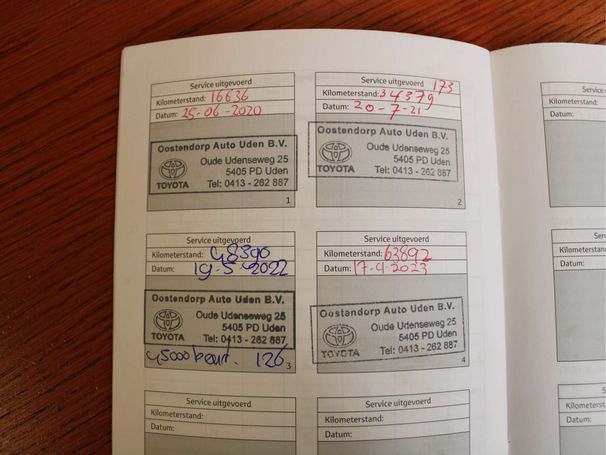 Service uitgevoerd
Kilometerstand: 16636
Datum: 25-06-2020
Oostendorp Auto Uden B.V.
Oude Udenseweg 25
5405 PD Uden
TOYOTA
Tel: 0413 - 262 887
1
Service uitgevoerd 173
Kilometerstand: 34379
Datum: 20-7-21
Oostendorp Auto Uden B.V.
Oude Udenseweg 25
5405 PD Uden
TOYOTA
Tel: 0413 - 262 887
2
Service uitgevoerd
Kilometerstand: 48390
Datum: 19-5-2022
Oostendorp Auto Uden B.V.
Oude Udenseweg 25
5405 PD Uden
TOYOTA
Tel: 0413 - 262 887
45000 beurt. 126
3
Service uitgevoerd
Kilometerstand: 63892
Datum: 17-4-2023
Oostendorp Auto Uden B.V.
Oude Udenseweg 25
5405 PD Uden
TOYOTA
Tel: 0413 - 262 887
4
Service uitgevoerd
Kilometerstand:
Datum:
Service uitgevoerd
Kilometerstand:
Datum:
Kilometers
Datum:
Kilometersta
Datum:
Kilometerst
Datum: